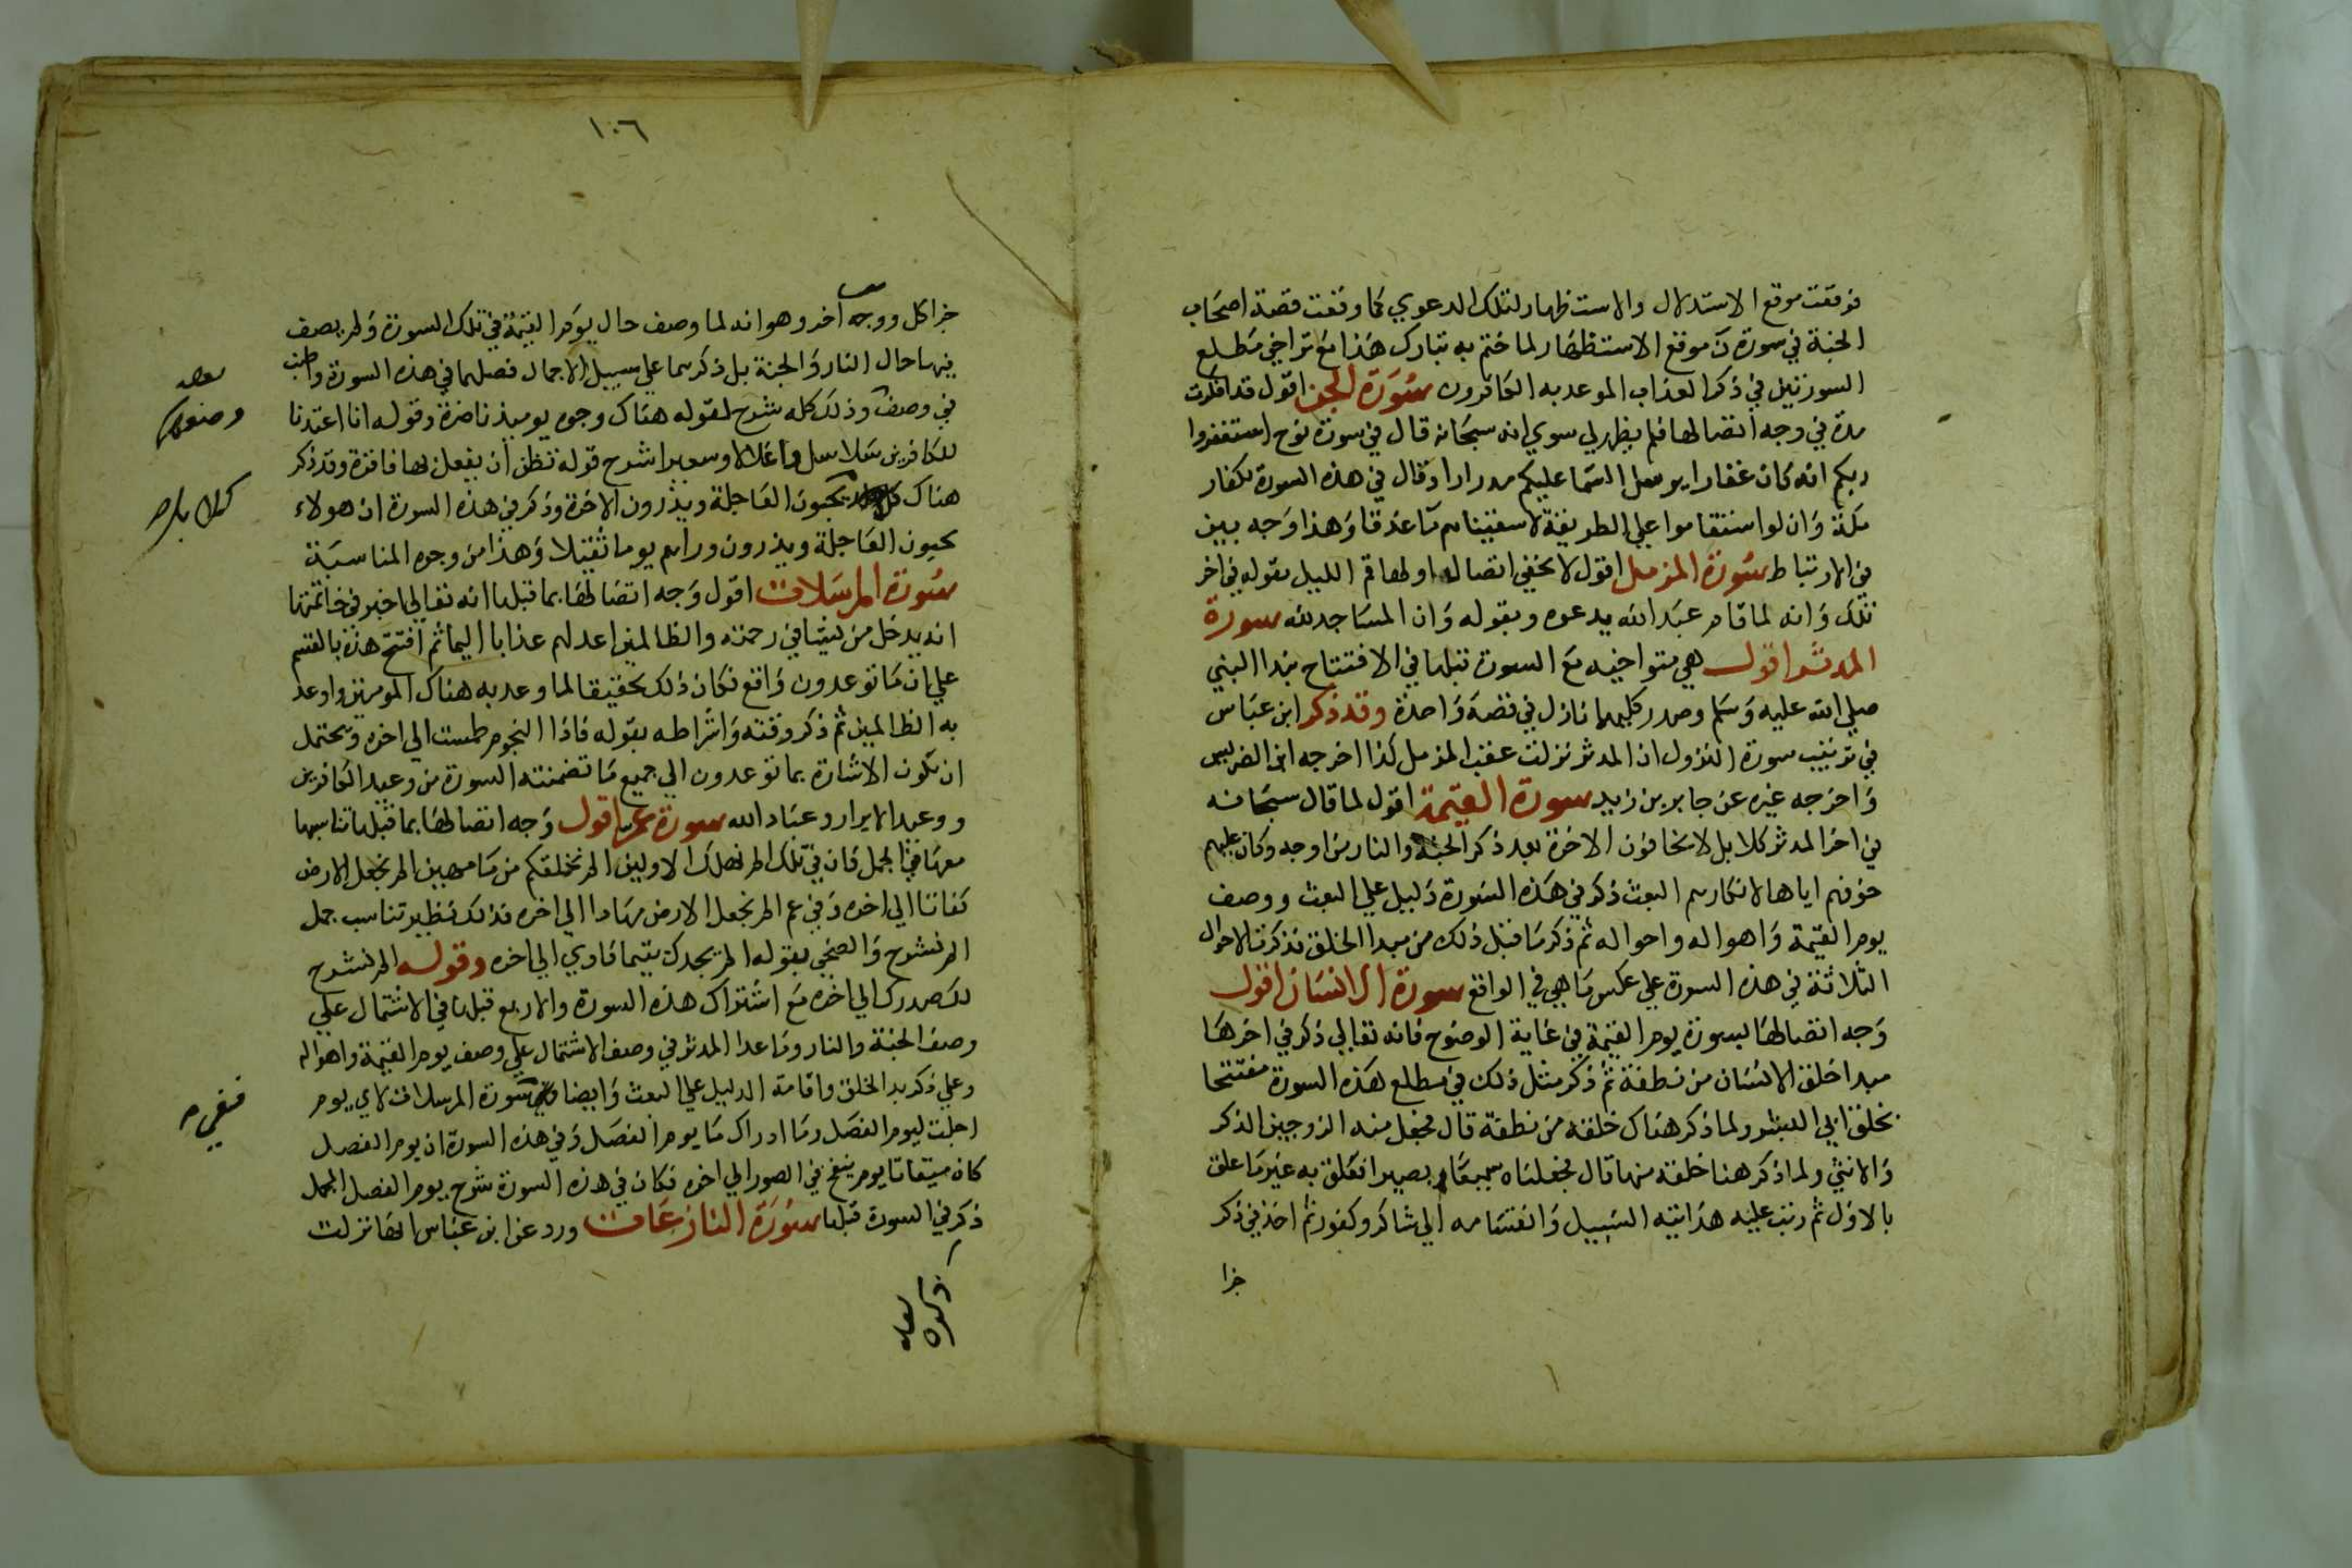 فوقعت موقع الاستدلال والاستظهار لتلك الدعوي كما وقعت قصة اصحاب
الجنة في سورة ن موقع الاستظهار لما ختم به تبارك هذا مع تواخي مطلع
السورتين في ذكر العذاب الموعد به الكافرون سورة الجن اقول قد افكرت
مدة في وجه اتصالها فلم يظهر لي سوي انه سبحانه قال في سورة نوح استغفروا
ربكم انه كان غفارا يرسل السما عليكم مدرارا وقال في هذه السورة لكفار
مكة وان لو استقاموا علي الطريقة لاسقيناهم ما غدقا وهذا وجه بين
في الارتباط سورة المزمل اقول لا يخفي اتصال اولها قم الليل بقوله في اخر
تلك وانه لما قام عبد الله يدعوه وبقوله وان المساجد لله سورة
المدثر اقول هي متواخيه مع السورة قبلها في الافتتاح بندا النبي
صلي الله عليه وسلم وصدر كليهما نازل في قصة واحدة وقد ذكر ابن عباس
في ترتيب سورة النزول ان المدثر نزلت عقب المزمل كذا اخرجه ابن الضريس
واخرجه غيره عن جابر بن زيد سورة القيمة اقول لما قال سبحانه
في اخر المدثر كلا بل لا يخافون الاخرة بعد ذكر الجنة والنار من اوجه وكان عليهم
خوفهم اياها لانكارهم البعث ذكر في هذه السورة دليل علي البعث ووصف
يوم القيمة واهواله واحواله ثم ذكر ما قبل ذلك من مبدا الخلق فذكرت الاحوال
الثلاثة في هذه السورة علي عكس ما هي في الواقع سورة الانسان اقول
وجه اتصالها بسورة يوم القيمة في غاية الوضوح فانه تعالي ذكر في اخرها
مبدا خلق الانسان من نطفة ثم ذكر مثل ذلك في مطلع هذه السورة مفتتحا
بخلق ابي البشر ولما ذكر هناك خلقه من نطفة قال فجعل منه الزوجين الذكر
والانثي ولما ذكر هنا خلقه منها قال فجعلناه سميعا بصيرا فعلق به غير ما علق
بالاول ثم رتب عليه هدايته السبيل وانقسامه الي شاكر وكفور ثم اخذ في ذكر
جزا
١٠٦
جزا كل ووجه آخر وهو انه لما وصف حال يوم القيمة في تلك السورة ولم يصف
فيها حال النار والجنة بل ذكرهما علي سبيل الاجمال فصلهما في هذه السورة واطنب
في وصف وذلك كله شرح لقوله هناك وجوه يوميذ ناضرة وقوله انا اعتدنا
للكافرين سلاسل واغلالا وسعيرا شرح قوله تظن أن يفعل بها فاقرة وقد ذكر
هناك يحبون العاجلة ويذرون الاخرة وذكر في هذه السورة ان هولاء
يحبون العاجلة ويذرون وراهم يوما ثقيلا وهذا من وجوه المناسبة
سورة المرسلات اقول وجه اتصالها بما قبلها انه تعالي اخبر في خاتمتها
انه يدخل من يشا في رحمته والظالمين اعد لهم عذابا اليما ثم افتتح هذه بالقسم
علي ان ما توعدون واقع فكان ذلك تحقيقا لما وعد به هناك المومنين واوعد
به الظالمين ثم ذكر وقته واشراطه بقوله فاذا النجوم طمست الي اخره ويحتمل
ان تكون الاشارة بما توعدون الي جميع ما تضمنته السورة من وعيد الكافرين
ووعيد الابرار وعباد الله سورة عم اقول وجه اتصالها بما قبلها تناسبها
معها في الجمل فان في تلك الم نهلك الاولين الم نخلقكم من ما مهين الم نجعل الارض
كفاتا الي اخره وفي عم الم نجعل الارض مهادا الي اخره فذلك نظير تناسب جمل
الم نشرح والضحي بقوله الم يجدك يتيما فاوي الي اخره وقوله الم نشرح
لك صدرك الي اخره مع اشتراك هذه السورة والاربع قبلها في الاشتمال علي
وصف الجنة والنار وما عدا المدثر في وصف الاشتمال علي وصف يوم القيمة واهواله
وعلي ذكر بد الخلق واقامة الدليل علي البعث وايضا سورة المرسلات لاي يوم
اجلت ليوم الفصل وما ادراك ما يوم الفصل وفي هذه السورة ان يوم الفصل
كان ميقاتا يوم ينفخ في الصور الي اخره فكان في هذه السورة شرح يوم الفصل المجمل
ذكر في السورة قبلها سورة النازعات ورد عن ابن عباس انها نزلت
ففي
ذكره
لعله